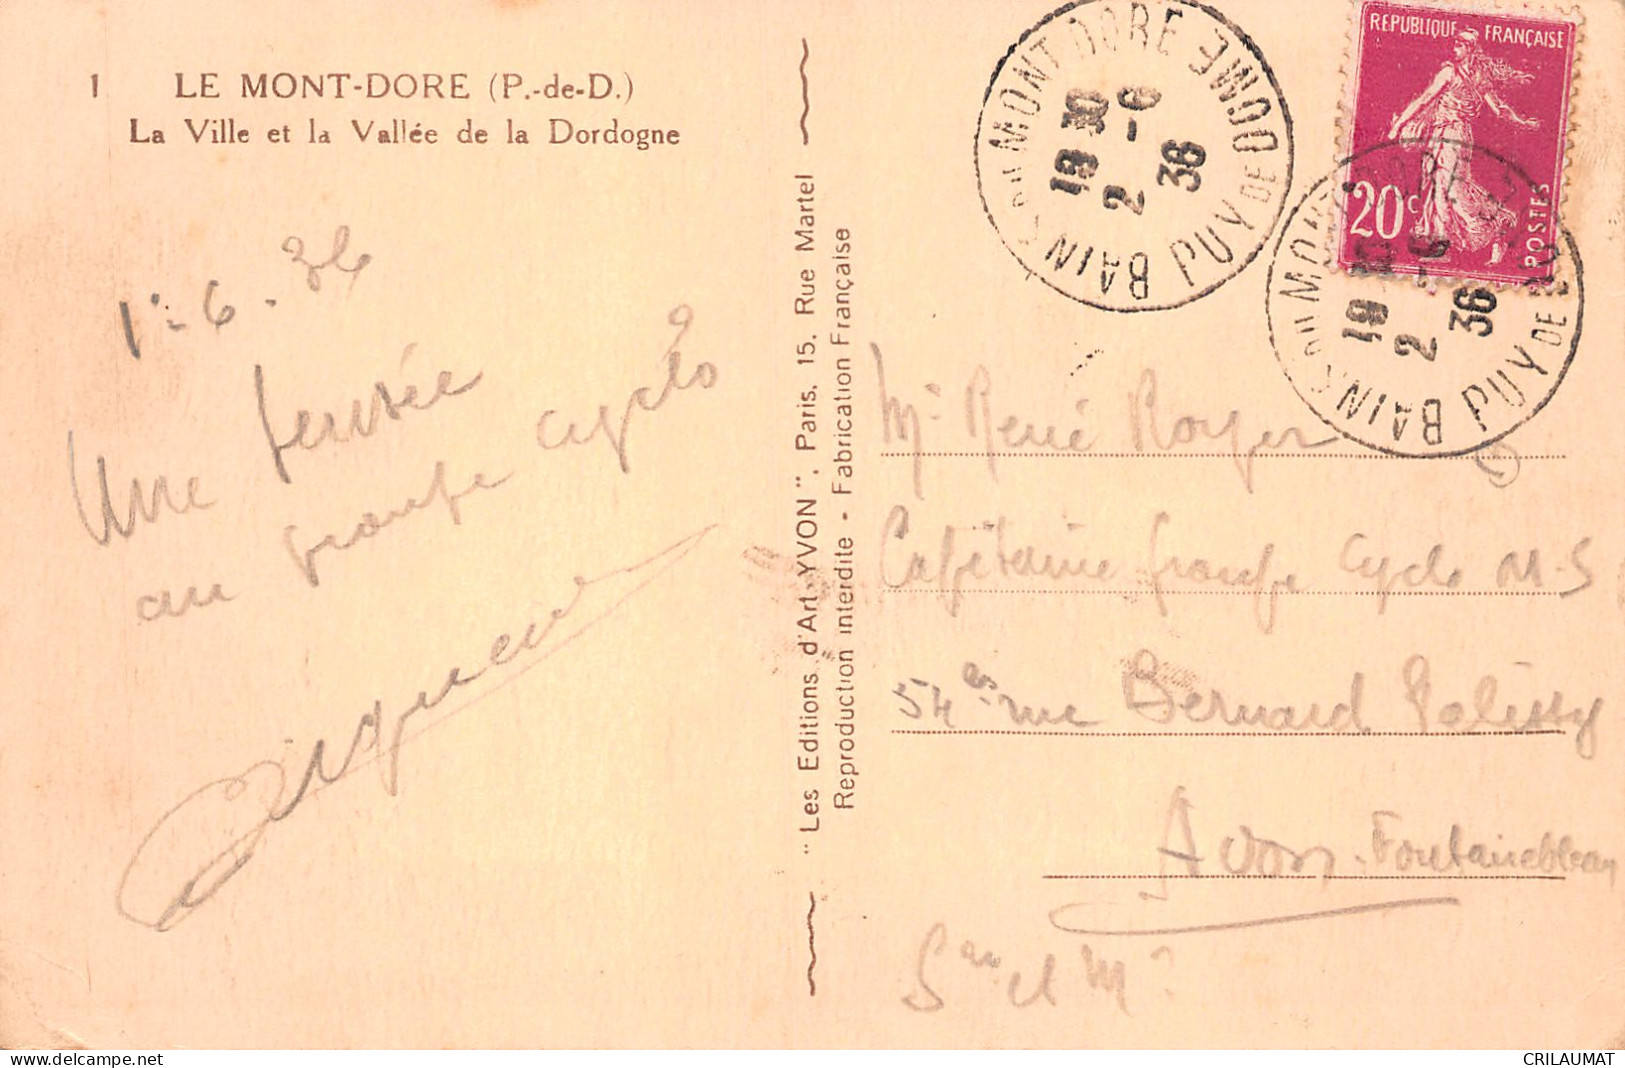 1 LE MONT-DORE (P.-de-D.)
La Ville et la Vallée de la Dordogne
1r-6-36
Une pensée
au groupe cyclo
"Les Editions d'Art YVON", Paris, 15, Rue Martel
Reproduction interdite - Fabrication Française
BAINS DU MONT DORE PUY DE DOME
19 30
2 -6
36
REPUBLIQUE FRANÇAISE
20c
POSTES
BAINS DU MONT DORE PUY DE DOME
19 30
2 -6
36
Mr René Royer
Capitaine groupe Cyclo M-S
54 rue Bernard Palissy
Avon-Fontainebleau
S et M
CRILAUMAT